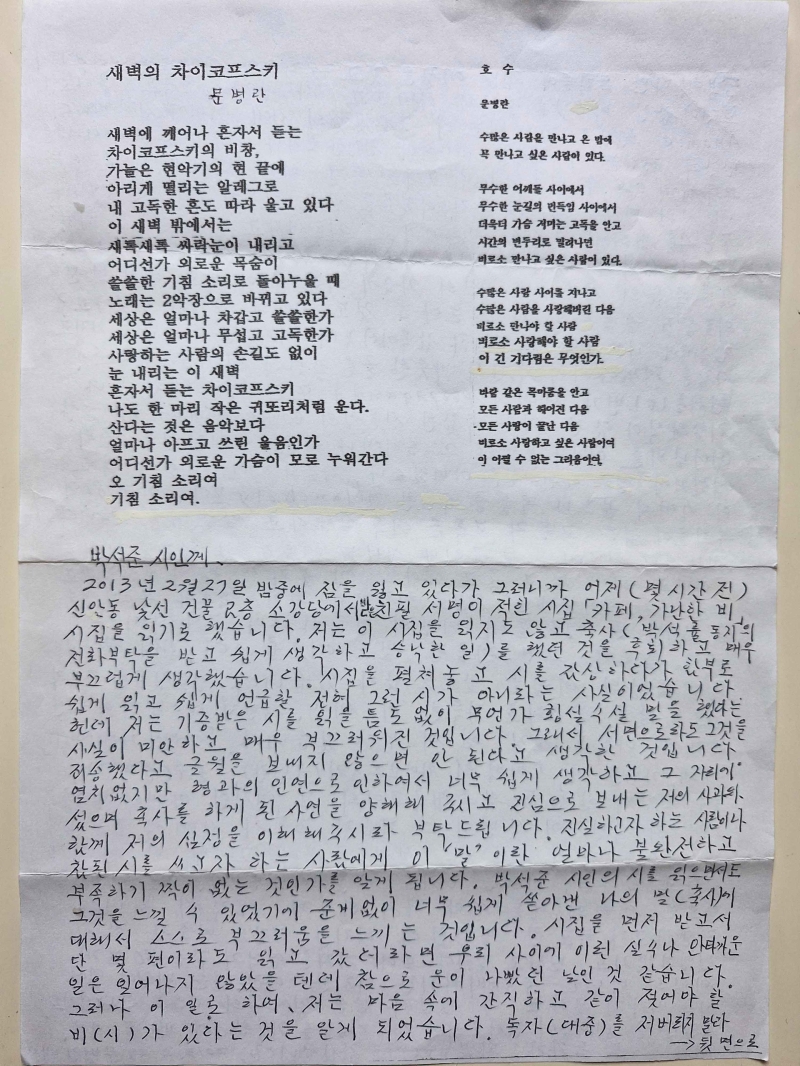 새벽의 차이코프스키
문병란
새벽에 깨어나 혼자서 듣는
차이코프스키의 비창,
가늘은 현악기의 현 끝에
아리게 떨리는 알레그로
내 고독한 혼도 따라 울고 있다
이 새벽 밖에서는
새록새록 싸락눈이 내리고
어디선가 외로운 목숨이
쓸쓸한 기침 소리로 돌아누울 때
노래는 2악장으로 바뀌고 있다
세상은 얼마나 차갑고 쓸쓸한가
세상은 얼마나 무섭고 고독한가
사랑하는 사람의 손길도 없이
눈 내리는 이 새벽
혼자서 듣는 차이코프스키
나도 한 마리 작은 귀또리처럼 운다.
산다는 것은 음악보다
얼마나 아프고 쓰린 울음인가
어디선가 외로운 가슴이 모로 누워간다
오 기침 소리여
기침 소리여.
호 수
문병란
수많은 사람을 만나고 온 밤에
꼭 만나고 싶은 사람이 있다.
무수한 어깨들 사이에서
무수한 눈길의 번득임 사이에서
더욱더 가슴 저미는 고독을 안고
시간의 변두리로 밀려나면
비로소 만나고 싶은 사람이 있다.
수많은 사람 사이를 지나고
수많은 사람을 사랑해버린 다음
비로소 만나야 할 사람
비로소 사랑해야 할 사람
이 긴 기다림은 무엇인가.
바람 같은 목마름을 안고
모든 사람과 헤어진 다음
모든 사랑이 끝난 다음
비로소 사랑하고 싶은 사람이여
이 어쩔 수 없는 그리움이여.
박석준 시인께.
2013年 2월 27일 밤중에 잠을 잃고 있다가 그러니까 어제(몇 시간 전)
신안동 낯선 건물 2층 소강당에서 받은 친필 서명이 적힌 시집 「카페, 가난한 비」
시집을 읽기로 했습니다. 저는 이 시집을 읽지도 않고 축사(박석률 동지의
전화부탁을 받고 쉽게 생각하고 승낙한 일)를 했던 것을 후회하고 매우
부끄럽게 생각했습니다. 시집을 펼쳐놓고 시를 감상하다가 함부로
쉽게 읽고 쉽게 언급할 전혀 그런 시가 아니라는 사실이었습니다.
헌데 저는 기증받은 시를 읽을 틈도 없이 무언가 횡설수설 말을 했다는
사실이 미안하고 매우 부끄러워진 것입니다. 그래서 서면으로라도 그것을
죄송했다고 글월을 보내지 않으면 안 된다고 생각한 것입니다
염치없지만 형과의 인연으로 인하여서 너무 쉽게 생각하고 그 자리에
섰으며 축사를 하게 된 사연을 양해해 주시고 진심으로 보내는 저의 사과와
함께 저의 심정을 이해해주시라 부탁드립니다. 진실하고자 하는 사람이나
참된 시를 쓰고자 하는 사람에게 이 "말"이란 얼마나 불완전하고
부족하기 짝이 없는 것인가를 알게 됩니다. 박석준 시인의 시를 읽으면서도
그것을 느낄 수 있었기에 준비없이 너무 쉽게 쏟아낸 나의 말(축사)에
대해서 스스로 부끄러움을 느끼는 것입니다. 시집을 먼저 받고서
단 몇 편이라도 읽고 갔더라면 우리 사이에 이런 실수나 안타까운
일은 일어나지 않았을 텐데 참으로 운이 나빴던 날인 것 같습니다.
그러나 이 일로 하여, 저는 마음 속에 간직하고 같이 젖어야 할
비(시)가 있다는 것을 알게 되었습니다. 독자(대중)를 저버리지 말라
→ 뒷 면으로